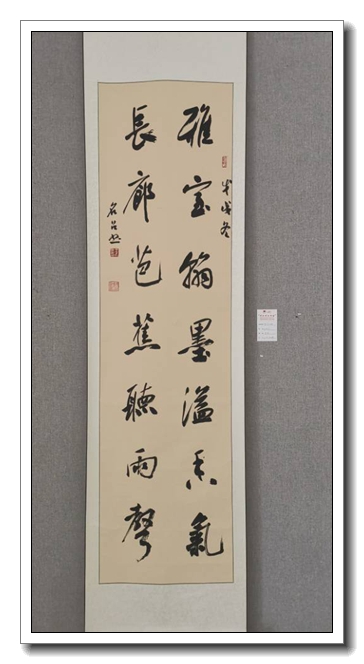 戊戌冬
雅室翰墨溢香氣
長廊芭蕉聽雨聲